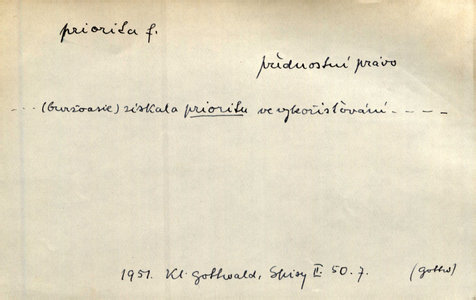 priorita f.
přednostní právo
--- (buržoasie) získala prioritu ve vykořisťování ----
1951. Kl. Gottwald, Spisy II. 50.7. (Gottw)